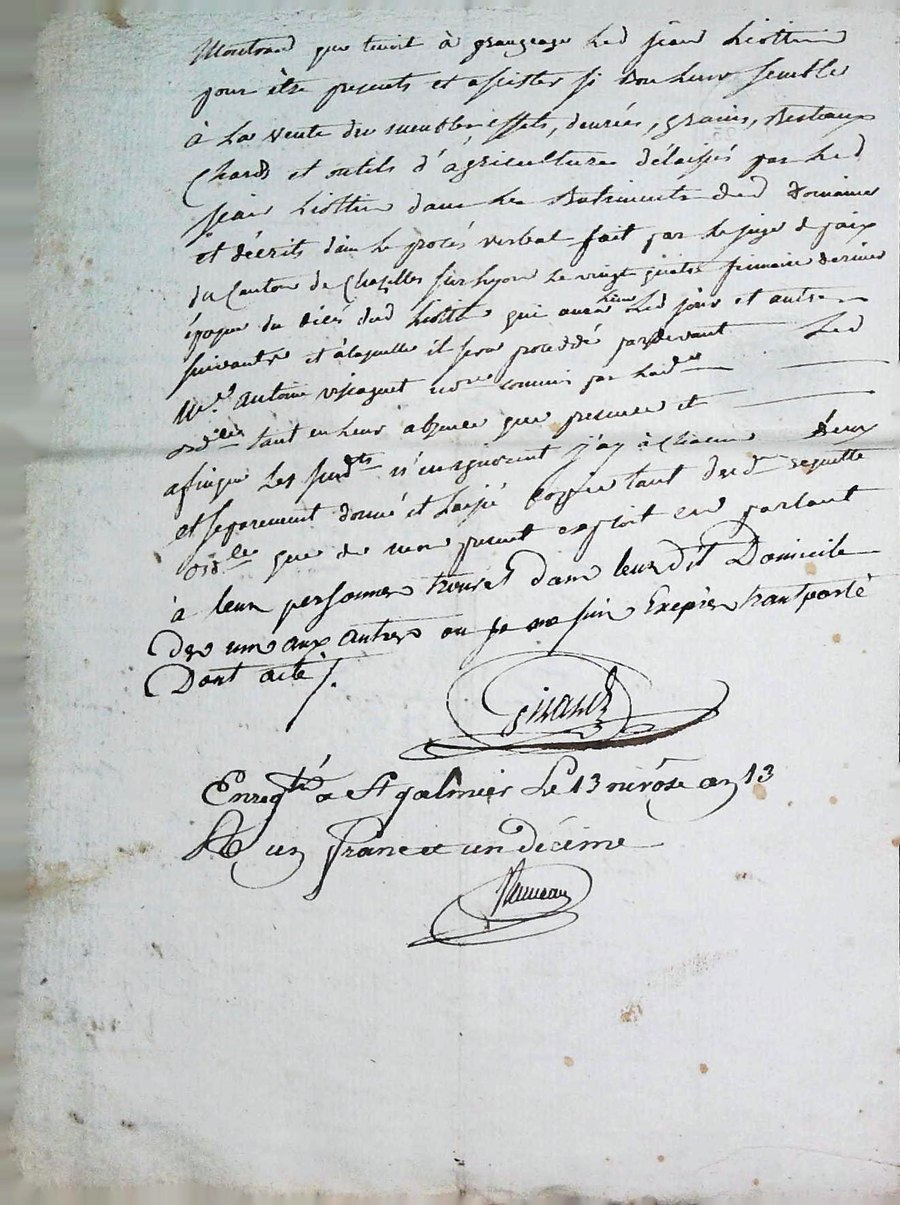 que tenoit à grangeage led jean Liottin
pour être presents et assister si bon leur semble
à la vente des meubles effets, denrées, grains, Bestiaux
Chards et outils d'agriculture délaissés par led
jean Liottin dans les Batiments dud Domaine
et décrits dans le procés verbal fait par le juge de paix
du Canton de Chazelles sur lyon le vingt quatre frimaire dernier
époque du décés dud Liottin qui aura lieu led jour et autres
suivants et à laquelle il sera procédé pardevant
Me. antoine commis par lad
tant en leur absence que presence et
afinque les susdts n'en ignorent j'ay à chacun Deux
et separement donné et laissé coppie tant dud requette
que de mon present exploit en parlant
à leur personnes trouvés dans leur dit Domicile
des uns aux autres ou je me suis Exprés transporté
Dont acte /.
Giraud
Enregtré a St galmier Le 13 nivôse an 13
un franc et un décime
Rameau